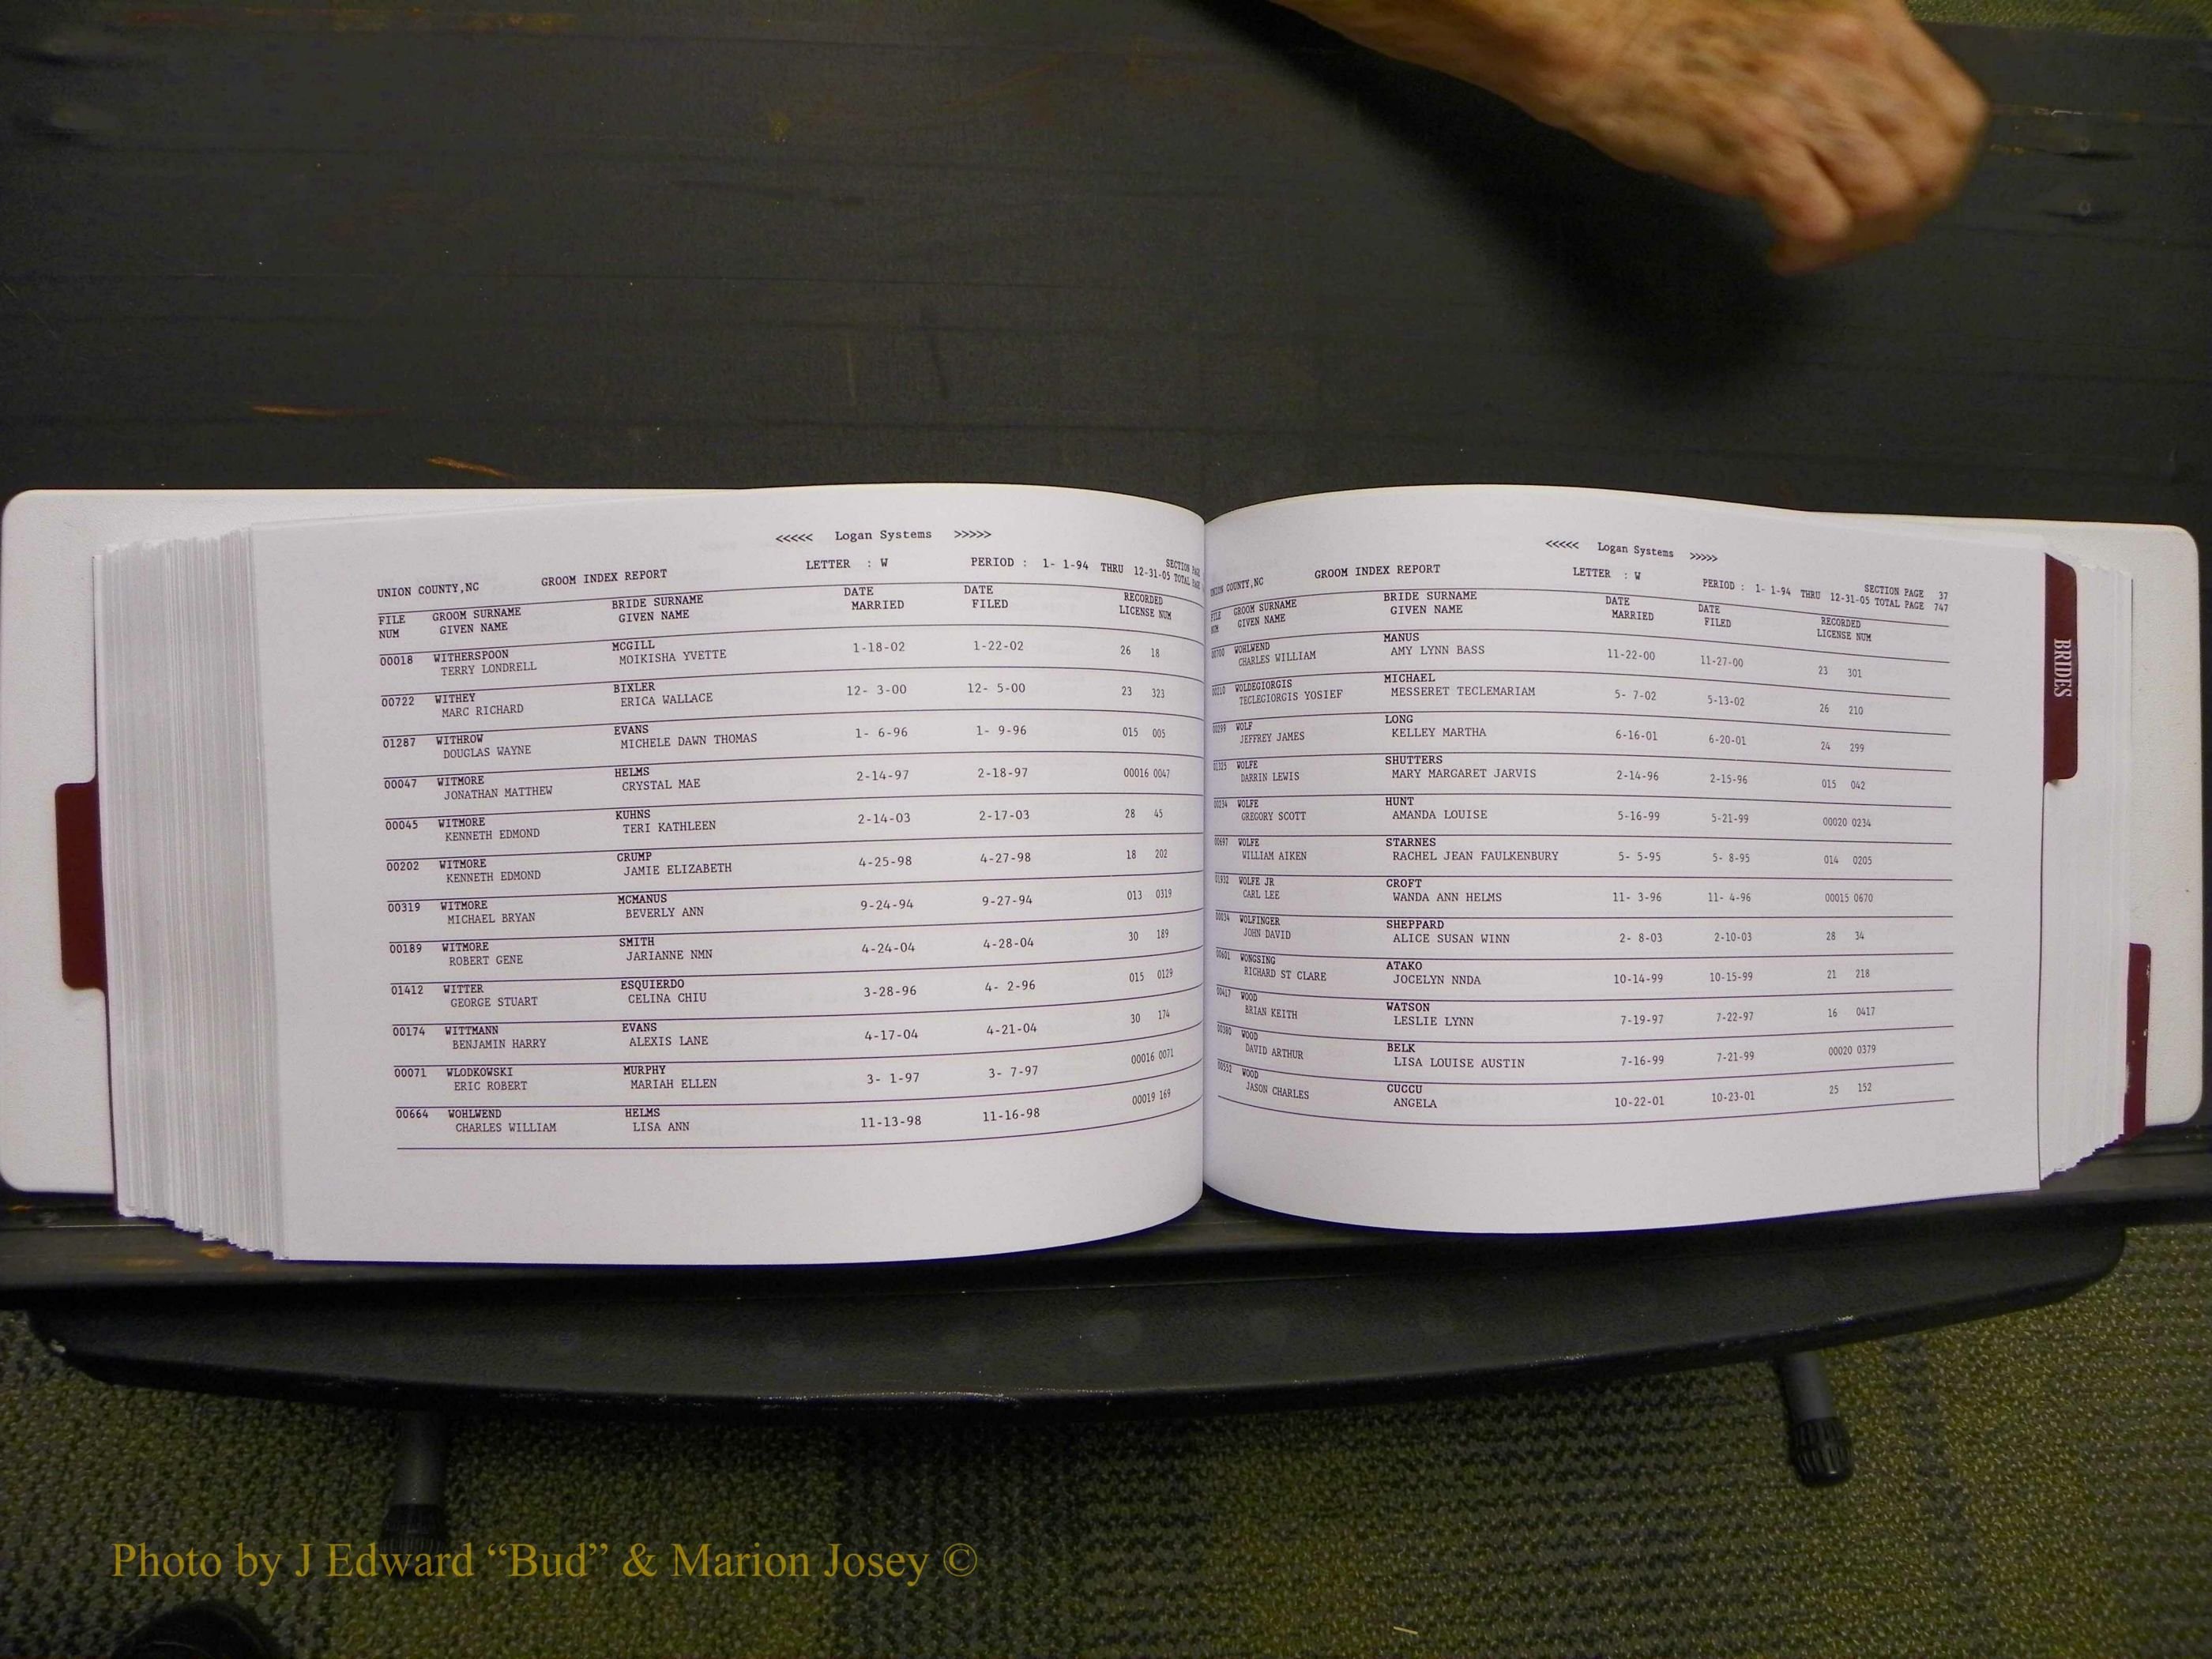 <<<<< Logan Systems >>>>>
UNION COUNTY,NC GROOM INDEX REPORT LETTER : W PERIOD : 1- 1-94 THRU 12-31-05 SECTION PAGE
TOTAL PAGE
FILE GROOM SURNAME BRIDE SURNAME DATE DATE RECORDED
NUM GIVEN NAME GIVEN NAME MARRIED FILED LICENSE NUM
00018 WITHERSPOON MCGILL 1-18-02 1-22-02 26 18
TERRY LONDRELL MOIKISHA YVETTE
00722 WITHEY BIXLER 12- 3-00 12- 5-00 23 323
MARC RICHARD ERICA WALLACE
01287 WITHROW EVANS 1- 6-96 1- 9-96 015 005
DOUGLAS WAYNE MICHELE DAWN THOMAS
00047 WITMORE HELMS 2-14-97 2-18-97 00016 0047
JONATHAN MATTHEW CRYSTAL MAE
00045 WITMORE KUHNS 2-14-03 2-17-03 28 45
KENNETH EDMOND TERI KATHLEEN
00202 WITMORE CRUMP 4-25-98 4-27-98 18 202
KENNETH EDMOND JAMIE ELIZABETH
00319 WITMORE MCMANUS 9-24-94 9-27-94 013 0319
MICHAEL BRYAN BEVERLY ANN
00189 WITMORE SMITH 4-24-04 4-28-04 30 189
ROBERT GENE JARIANNE NMN
01412 WITTER ESQUIERDO 3-28-96 4- 2-96 015 0129
GEORGE STUART CELINA CHIU
00174 WITTMANN EVANS 4-17-04 4-21-04 30 174
BENJAMIN HARRY ALEXIS LANE
00071 WLODKOWSKI MURPHY 3- 1-97 3- 7-97 00016 0071
ERIC ROBERT MARIAH ELLEN
00664 WOHLWEND HELMS 11-13-98 11-16-98 00019 169
CHARLES WILLIAM LISA ANN
<<<<< Logan Systems >>>>>
UNION COUNTY,NC GROOM INDEX REPORT LETTER : W PERIOD : 1- 1-94 THRU 12-31-05 SECTION PAGE 37
TOTAL PAGE 747
FILE GROOM SURNAME BRIDE SURNAME DATE DATE RECORDED
NUM GIVEN NAME GIVEN NAME MARRIED FILED LICENSE NUM
WOHLWEND MANUS 11-22-00 11-27-00 23 301
CHARLES WILLIAM AMY LYNN BASS
WOLDEGIORGIS MICHAEL 5- 7-02 5-13-02 26 210
TECLEGIORGIS YOSIEF MESSERET TECLEMARIAM
WOLF LONG 6-16-01 6-20-01 24 299
JEFFREY JAMES KELLEY MARTHA
WOLFE SHUTTERS 2-14-96 2-15-96 015 042
DARRIN LEWIS MARY MARGARET JARVIS
00234 WOLFE HUNT 5-16-99 5-21-99 00020 0234
GREGORY SCOTT AMANDA LOUISE
00697 WOLFE STARNES 5- 5-95 5- 8-95 014 0205
WILLIAM AIKEN RACHEL JEAN FAULKENBURY
01932 WOLFE JR CROFT 11- 3-96 11- 4-96 00015 0670
CARL LEE WANDA ANN HELMS
00034 WOLFINGER SHEPPARD 2- 8-03 2-10-03 28 34
JOHN DAVID ALICE SUSAN WINN
00601 WONGSING ATAKO 10-14-99 10-15-99 21 218
RICHARD ST CLARE JOCELYN NNDA
00417 WOOD WATSON 7-19-97 7-22-97 16 0417
BRIAN KEITH LESLIE LYNN
00380 WOOD BELK 7-16-99 7-21-99 00020 0379
DAVID ARTHUR LISA LOUISE AUSTIN
00552 WOOD CUCCU 10-22-01 10-23-01 25 152
JASON CHARLES ANGELA
BRIDES
Photo by J Edward “Bud” & Marion Josey ©